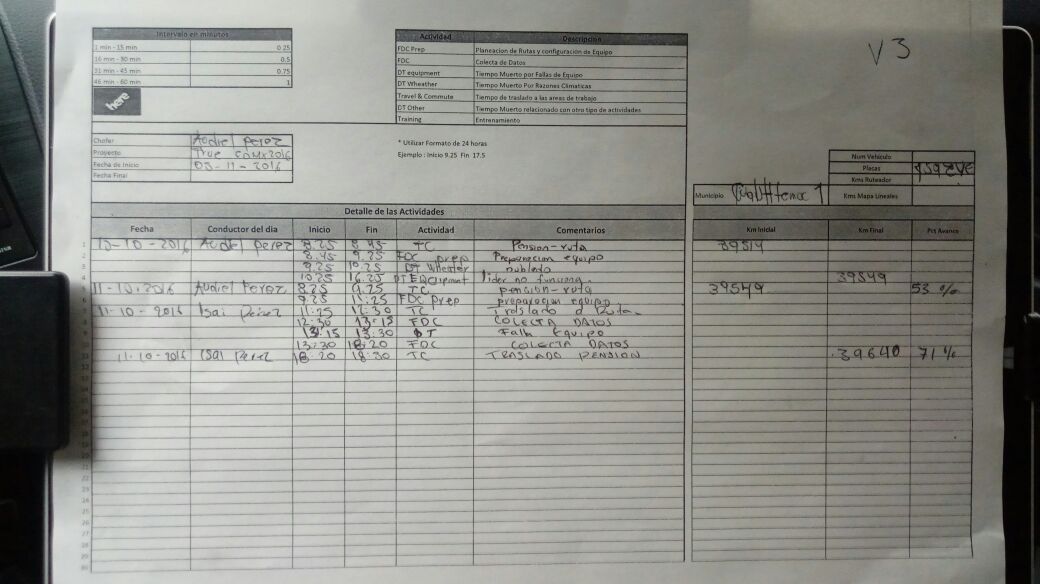 Intervalo en minutos
1 min - 15 min 0.25
16 min - 30 min 0.5
31 min - 45 min 0.75
46 min - 60 min 1
here
Actividad Descripcion
FDC Prep Planeacion de Rutas y configuración de Equipo
FDC Colecta de Datos
DT equipment Tiempo Muerto por Fallas de Equipo
DT Wheather Tiempo Muerto Por Razones Climaticas
Travel & Commute Tiempo de traslado a las areas de trabajo
DT Other Tiempo Muerto relacionado con otro tipo de actividades
Training Entrenamiento
V3
* Utilizar Formato de 24 horas
Ejemplo : Inicio 9.25 Fin 17.5
Chofer Audiel perez
Proyecto True CDMX2016
Fecha de Inicio 03-11-2016
Fecha Final
Num Vehiculo
Placas
Kms Ruteador
Municipio 1 Kms Mapa Lineales
Detalle de las Actividades
Fecha Conductor del dia Inicio Fin Actividad Comentarios Km Inicial Km Final Pct Avance
1 10-10-2016 Audiel perez 8.25 8.45 TC Pension-ruta 39514
2 8.45 9.25 FDC prep Preparacion equipo
3 9.25 10.25 DT Wheater nublado
4 10.25 16.25 DT EQuipment lider no funciona. 39549
5 11-10-2016 Audiel Perez 8.25 9.25 TC pension-ruta 39549 53 %
6 9.25 11:25 FDC prep preparacion equipo
7 11-10-2016 Isai perez 11:25 12:30 TC Traslado a Ruta.
8 12:30 13:15 FDC COLECTA DATOS
9 13:15 13:30 DT Falla Equipo
10 13:30 18:20 FDC COLECTA DATOS
11 11-10-2016 Isai perez 18:20 18:30 TC TRASLADO PENSION 39640 71 %
12
13
14
15
16
17
18
19
20
21
22
23
24
25
26
27
28
29
30